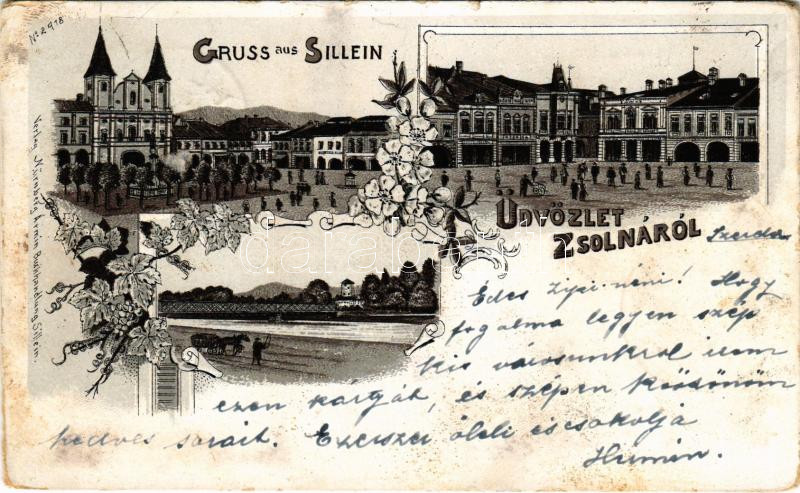 No 2918
GRUSS aus SILLEIN
Verlag Nürnberg Armin Buchhandlung Sillein.
ÜDVÖZLET
ZSOLNÁRÓL
Szerda
Édes Zsipi néni! Hogy
fogalma legyen szép
kis városunkról irom
ezen kártyát, és szépen köszönöm
kedves sorait. Ezerszer öleli és csókolja
darabanth